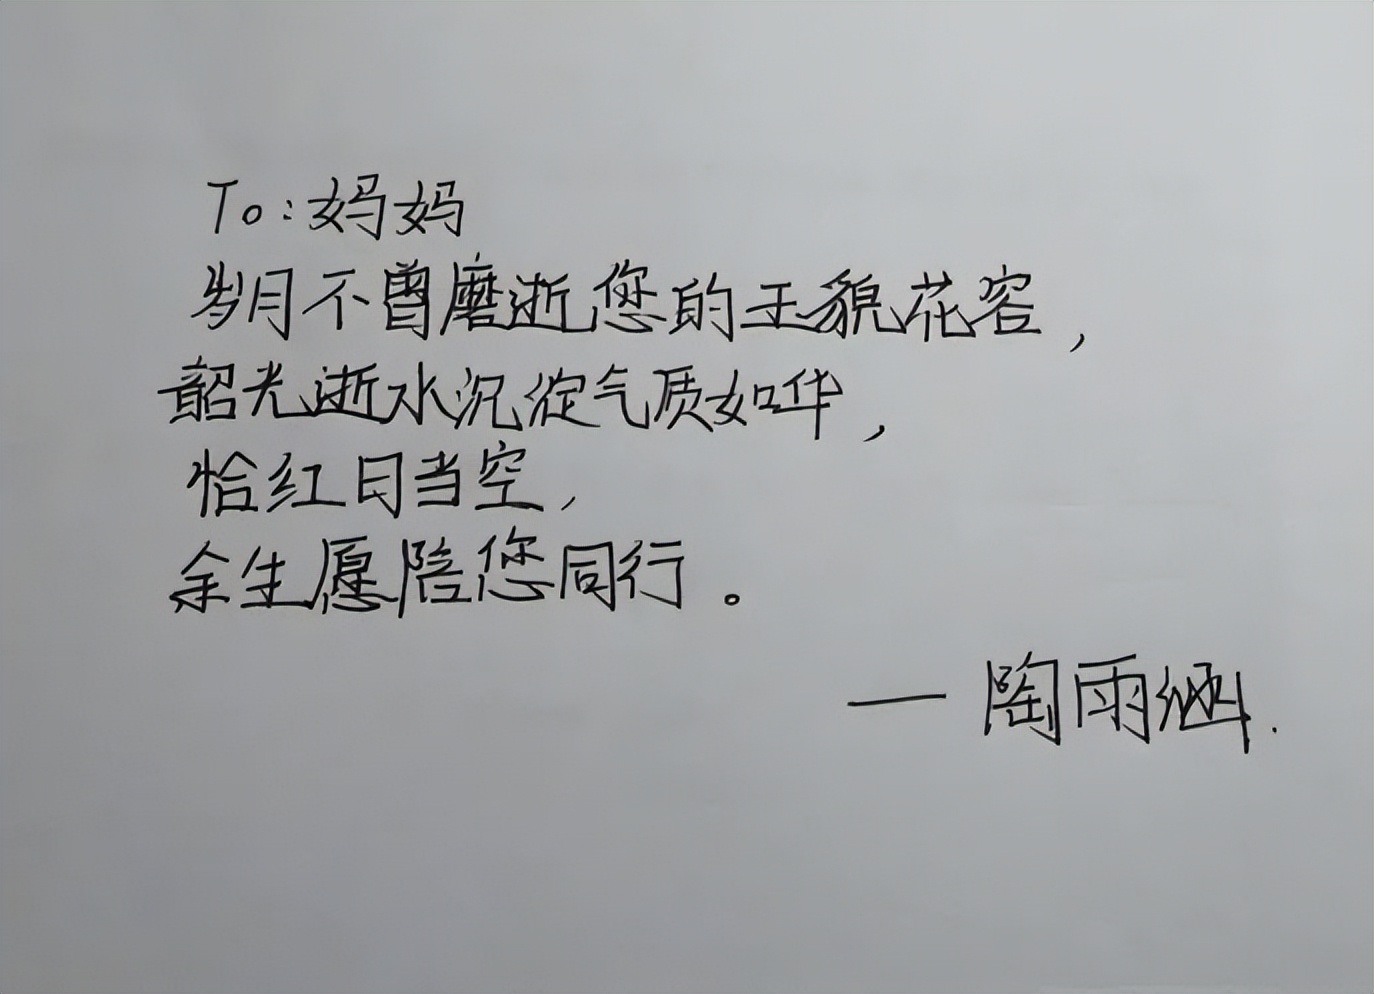 To:妈妈
岁月不曾磨逝您的玉貌花容，
韶光逝水沉淀气质如华，
恰红日当空，
余生愿陪您同行。
— 陶雨涵.